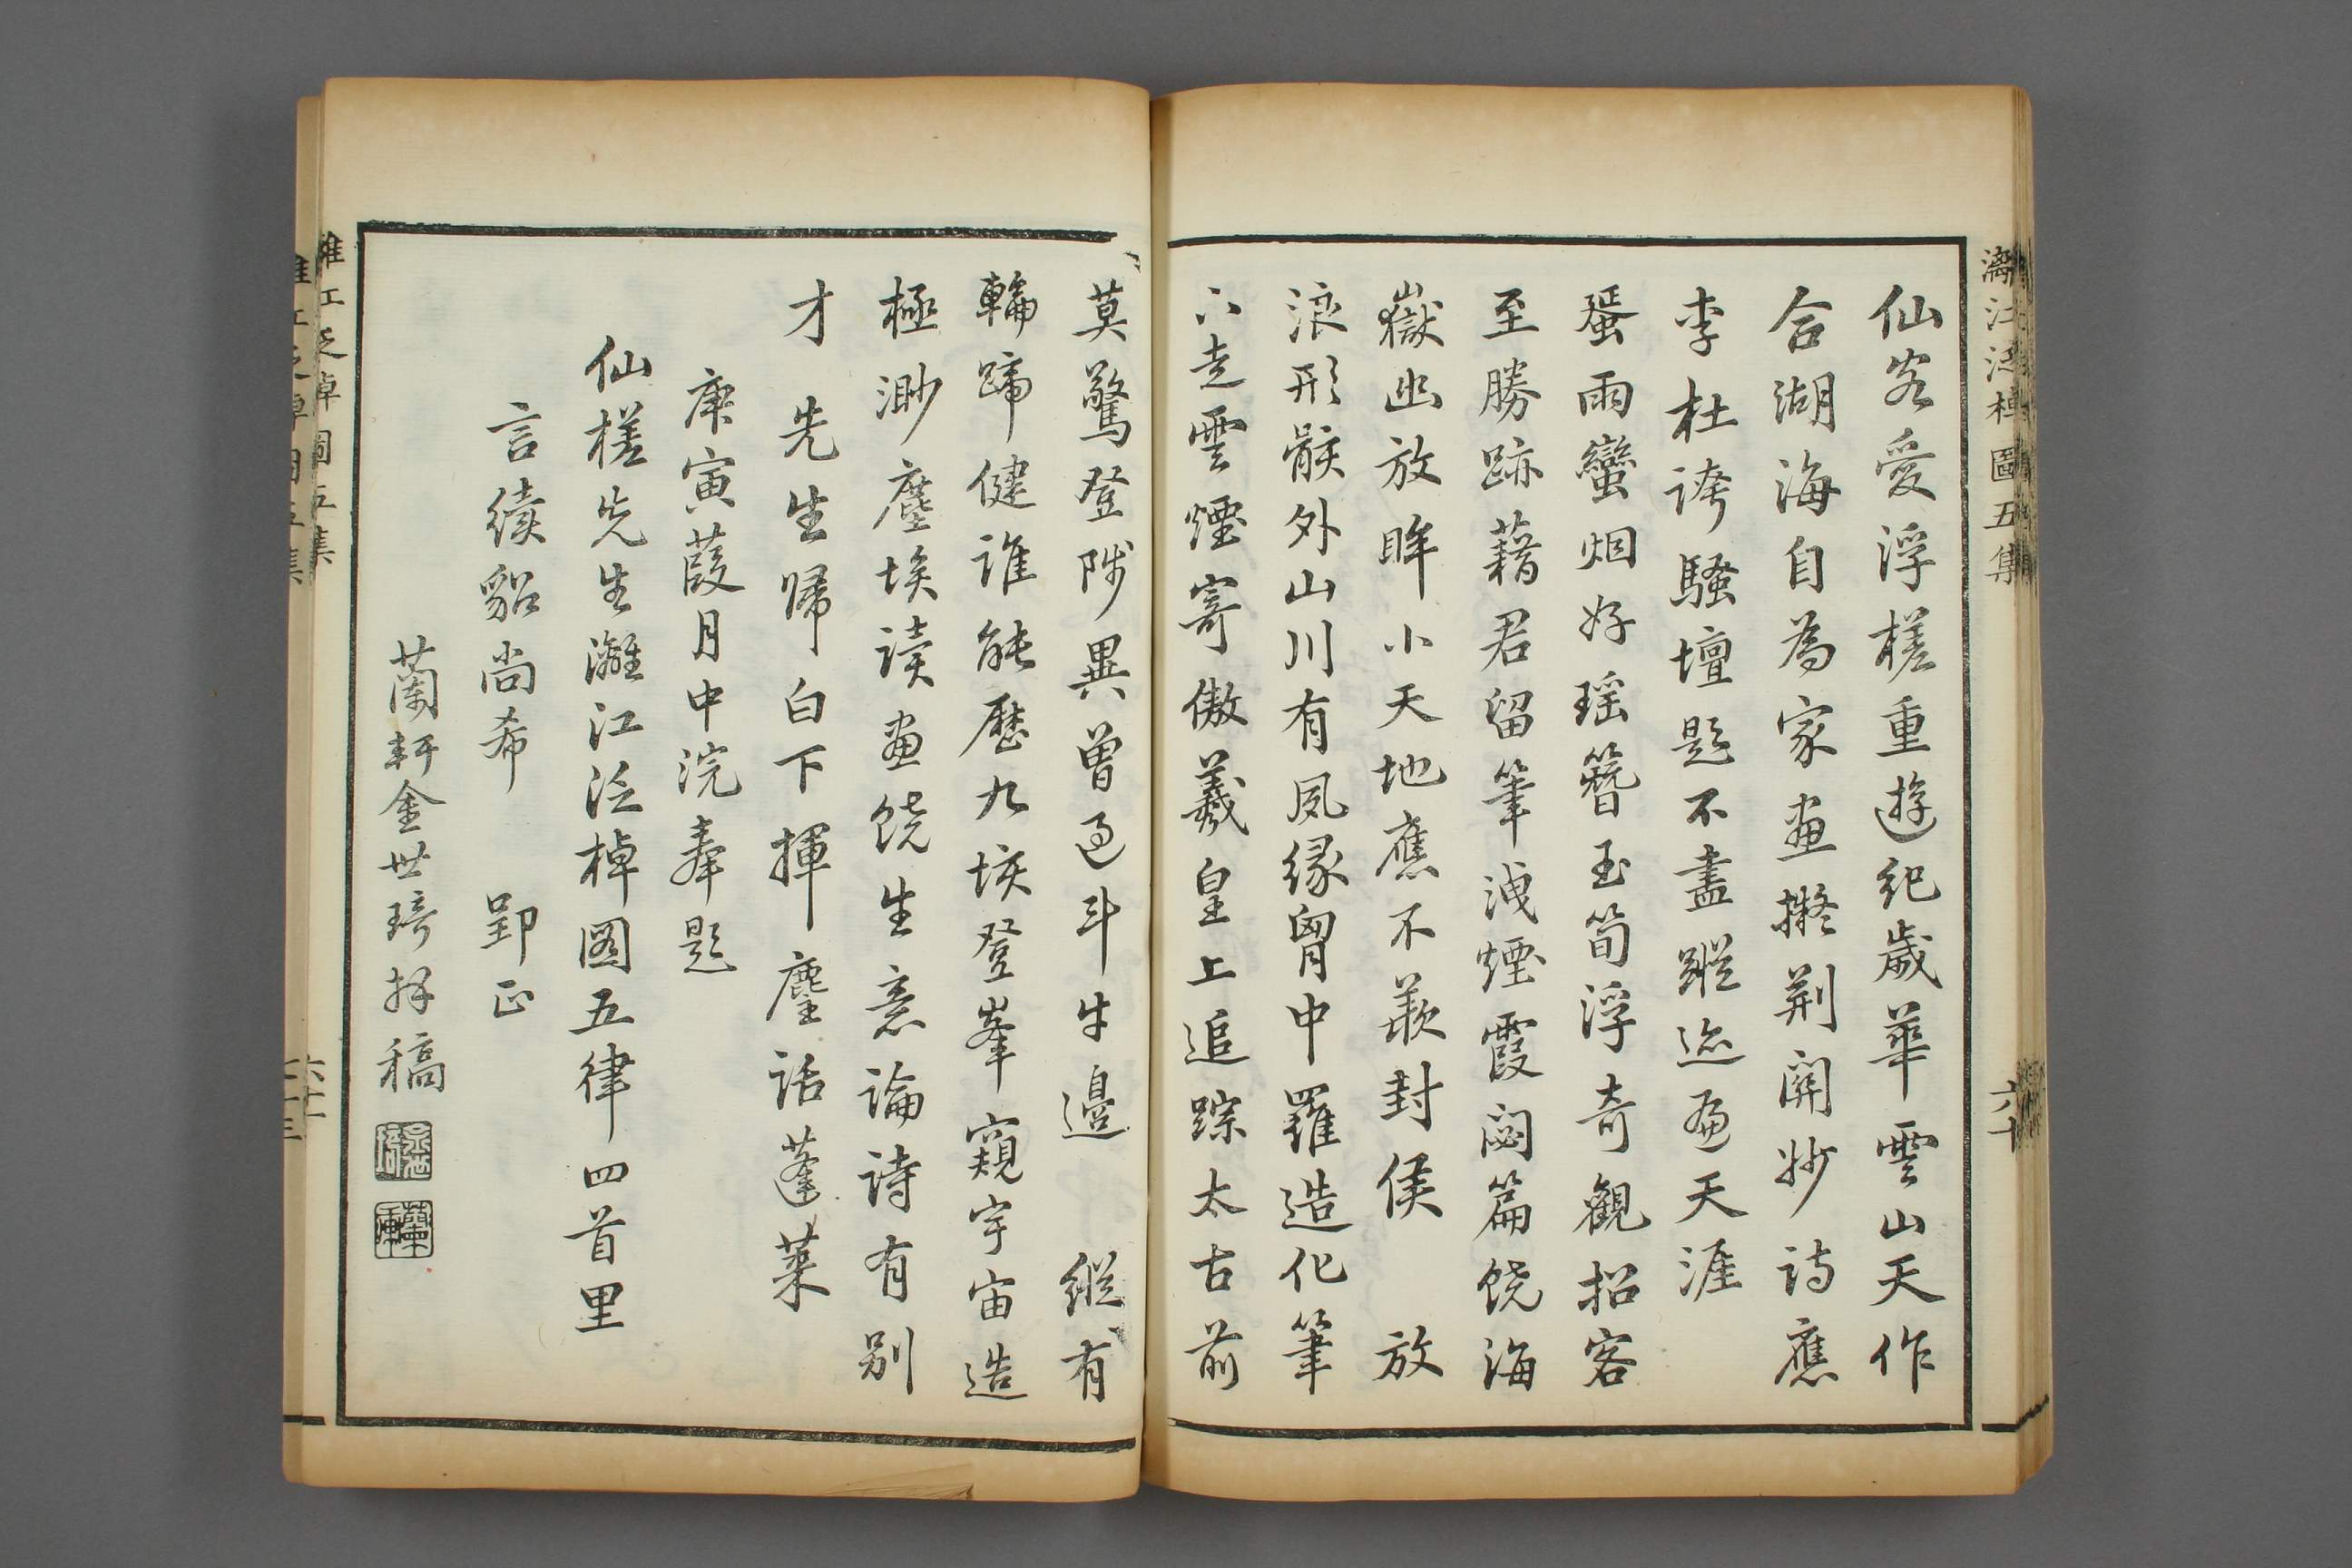 灕江泛棹圖五集
六十
仙客愛浮槎重遊紀歲華雲山天作
合湖海自為家畫擬荆關妙詩應
李杜誇騷壇題不盡蹤跡遍天涯
蜑雨蠻烟好瑶簪玉筍浮奇觀招客
至勝跡藉君留筆洩煙霞閟篇饒海
嶽幽放眸小天地應不羨封侯　放
浪形骸外山川有夙緣胷中羅造化筆
下走雲煙寄傲羲皇上追踪太古前
莫驚登陟異曾過斗牛邊　縱有
輪蹄健誰能歷九垓登峯窺宇宙造
極渺塵埃读畫饒生意論詩有別
才先生歸白下揮麈話蓬萊
庚寅葭月中浣奉題
仙槎先生灕江泛棹圖五律四首里
言續貂尚希　郢正
蘭軒金世琦拜稿